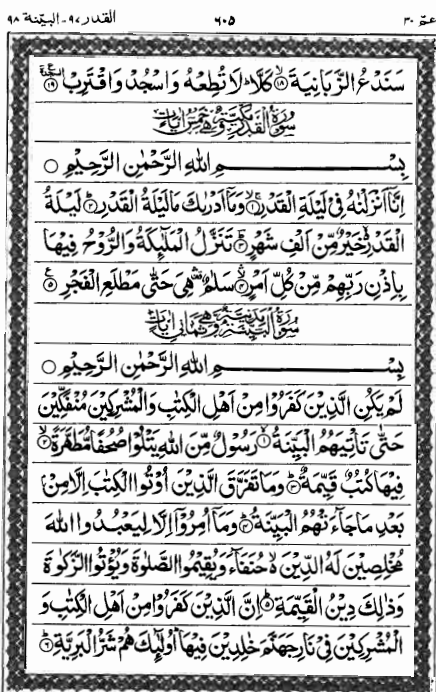 عمّ ٣٠ ٦٠٥ القدر ٩٧-البيّنة ٩٨
سَنَدْعُ الزَّبَانِيَةَ ۙ﴿۱۸﴾ كَلَّا ؕ لَا تُطِعْهُ وَاسْجُدْ وَاقْتَرِبْ ﴿۱۹﴾
سُوْرَةُ الْقَدْرِ مَكِّيَّةٌ وَّهِيَ خَمْسُ اٰيَاتٍ
بِسْمِ اللهِ الرَّحْمٰنِ الرَّحِيْمِ ○
اِنَّاۤ اَنْزَلْنٰهُ فِيْ لَيْلَةِ الْقَدْرِ ﴿۱﴾ وَمَاۤ اَدْرٰىكَ مَا لَيْلَةُ الْقَدْرِ ؕ﴿۲﴾ لَيْلَةُ
الْقَدْرِ خَيْرٌ مِّنْ اَلْفِ شَهْرٍ ؕ﴿۳﴾ تَنَزَّلُ الْمَلٰٓئِكَةُ وَالرُّوْحُ فِيْهَا
بِاِذْنِ رَبِّهِمْ مِّنْ كُلِّ اَمْرٍ ۙ﴿۴﴾ سَلٰمٌ ۛ هِيَ حَتّٰى مَطْلَعِ الْفَجْرِ ﴿۵﴾
سُوْرَةُ الْبَيِّنَةِ مَدَنِيَّةٌ وَّهِيَ ثَمَانِيْ اٰيَاتٍ
بِسْمِ اللهِ الرَّحْمٰنِ الرَّحِيْمِ ○
لَمْ يَكُنِ الَّذِيْنَ كَفَرُوْا مِنْ اَهْلِ الْكِتٰبِ وَالْمُشْرِكِيْنَ مُنْفَكِّيْنَ
حَتّٰى تَاْتِيَهُمُ الْبَيِّنَةُ ۙ﴿۱﴾ رَسُوْلٌ مِّنَ اللهِ يَتْلُوْا صُحُفًا مُّطَهَّرَةً ۙ﴿۲﴾
فِيْهَا كُتُبٌ قَيِّمَةٌ ؕ﴿۳﴾ وَمَا تَفَرَّقَ الَّذِيْنَ اُوْتُوا الْكِتٰبَ اِلَّا مِنْۢ
بَعْدِ مَا جَآءَتْهُمُ الْبَيِّنَةُ ؕ﴿۴﴾ وَمَاۤ اُمِرُوْۤا اِلَّا لِيَعْبُدُوا اللهَ
مُخْلِصِيْنَ لَهُ الدِّيْنَ ۙ حُنَفَآءَ وَيُقِيْمُوا الصَّلٰوةَ وَيُؤْتُوا الزَّكٰوةَ
وَذٰلِكَ دِيْنُ الْقَيِّمَةِ ؕ﴿۵﴾ اِنَّ الَّذِيْنَ كَفَرُوْا مِنْ اَهْلِ الْكِتٰبِ وَ
الْمُشْرِكِيْنَ فِيْ نَارِ جَهَنَّمَ خٰلِدِيْنَ فِيْهَا ؕ اُولٰٓئِكَ هُمْ شَرُّ الْبَرِيَّةِ ؕ﴿۶﴾